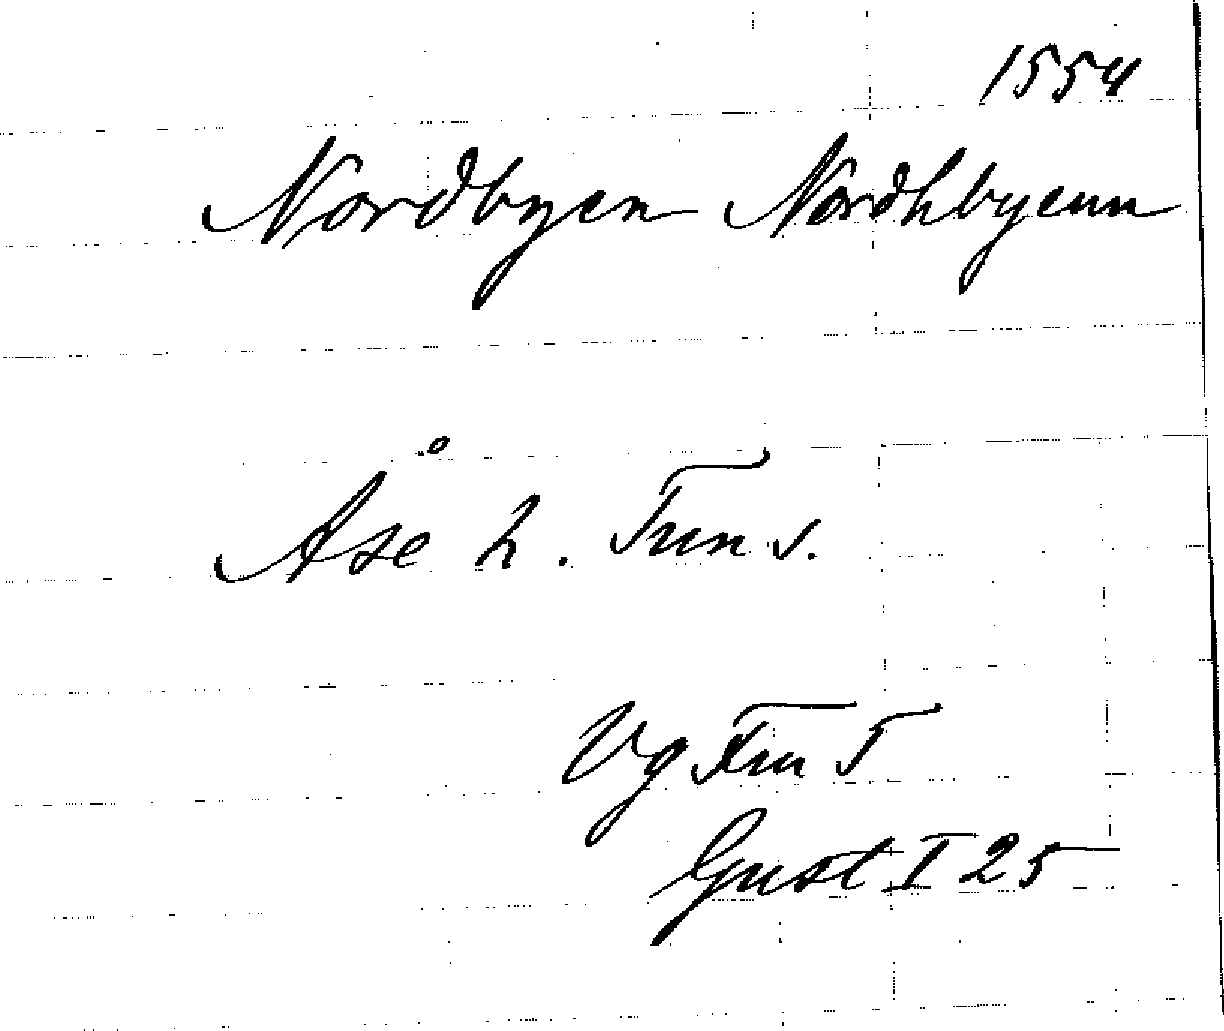 1554
Nordbyen Nordhbyenn
Åse h. Trens.
Vg Fru 5
Gust I 25